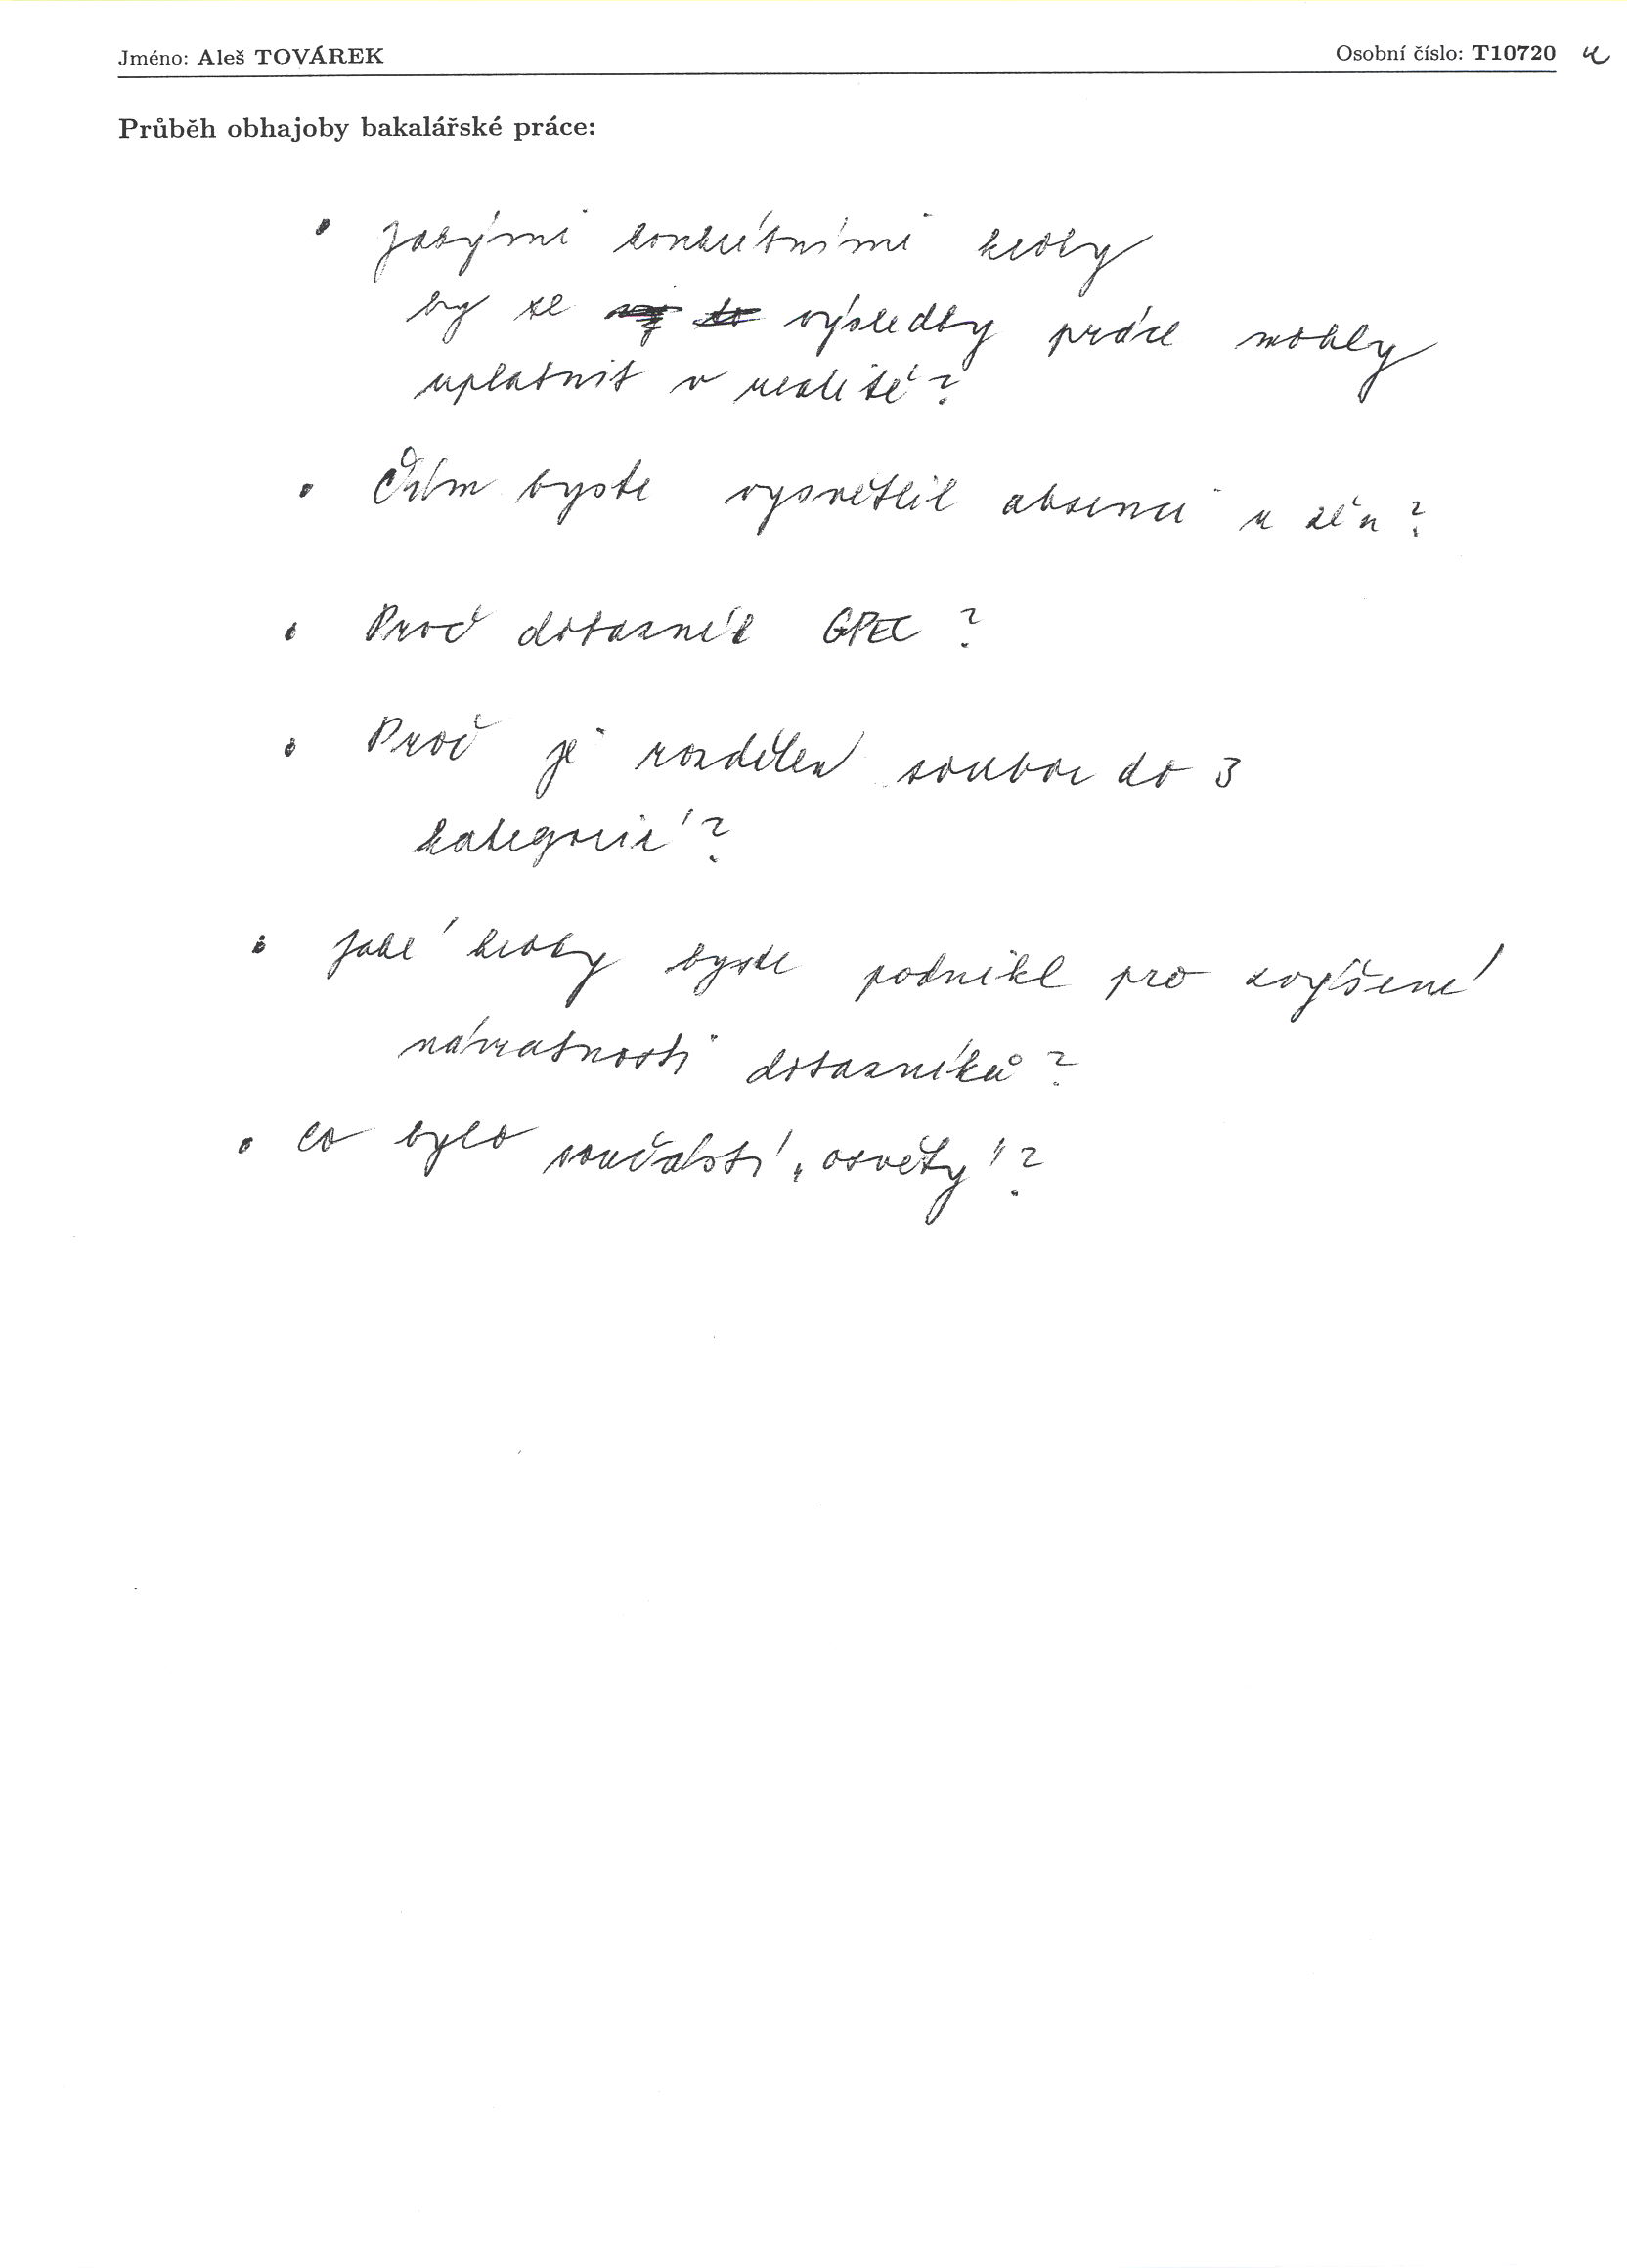 Jméno: Aleš TOVÁREK Osobní číslo: T10720
Průběh obhajoby bakalářské práce:
• Jakými konkrétními kroky
by se výsledky práce mohly
uplatnit v realitě?
• Čím byste vysvětlil absenci u žen?
• Proč dotazník GPEC?
• Proč je rozdělen soubor do 3
kategorií?
• Jaké kroky byste podnikl pro zvýšení
návratnosti dotazníků?
• Co bylo součástí „osvěty"?